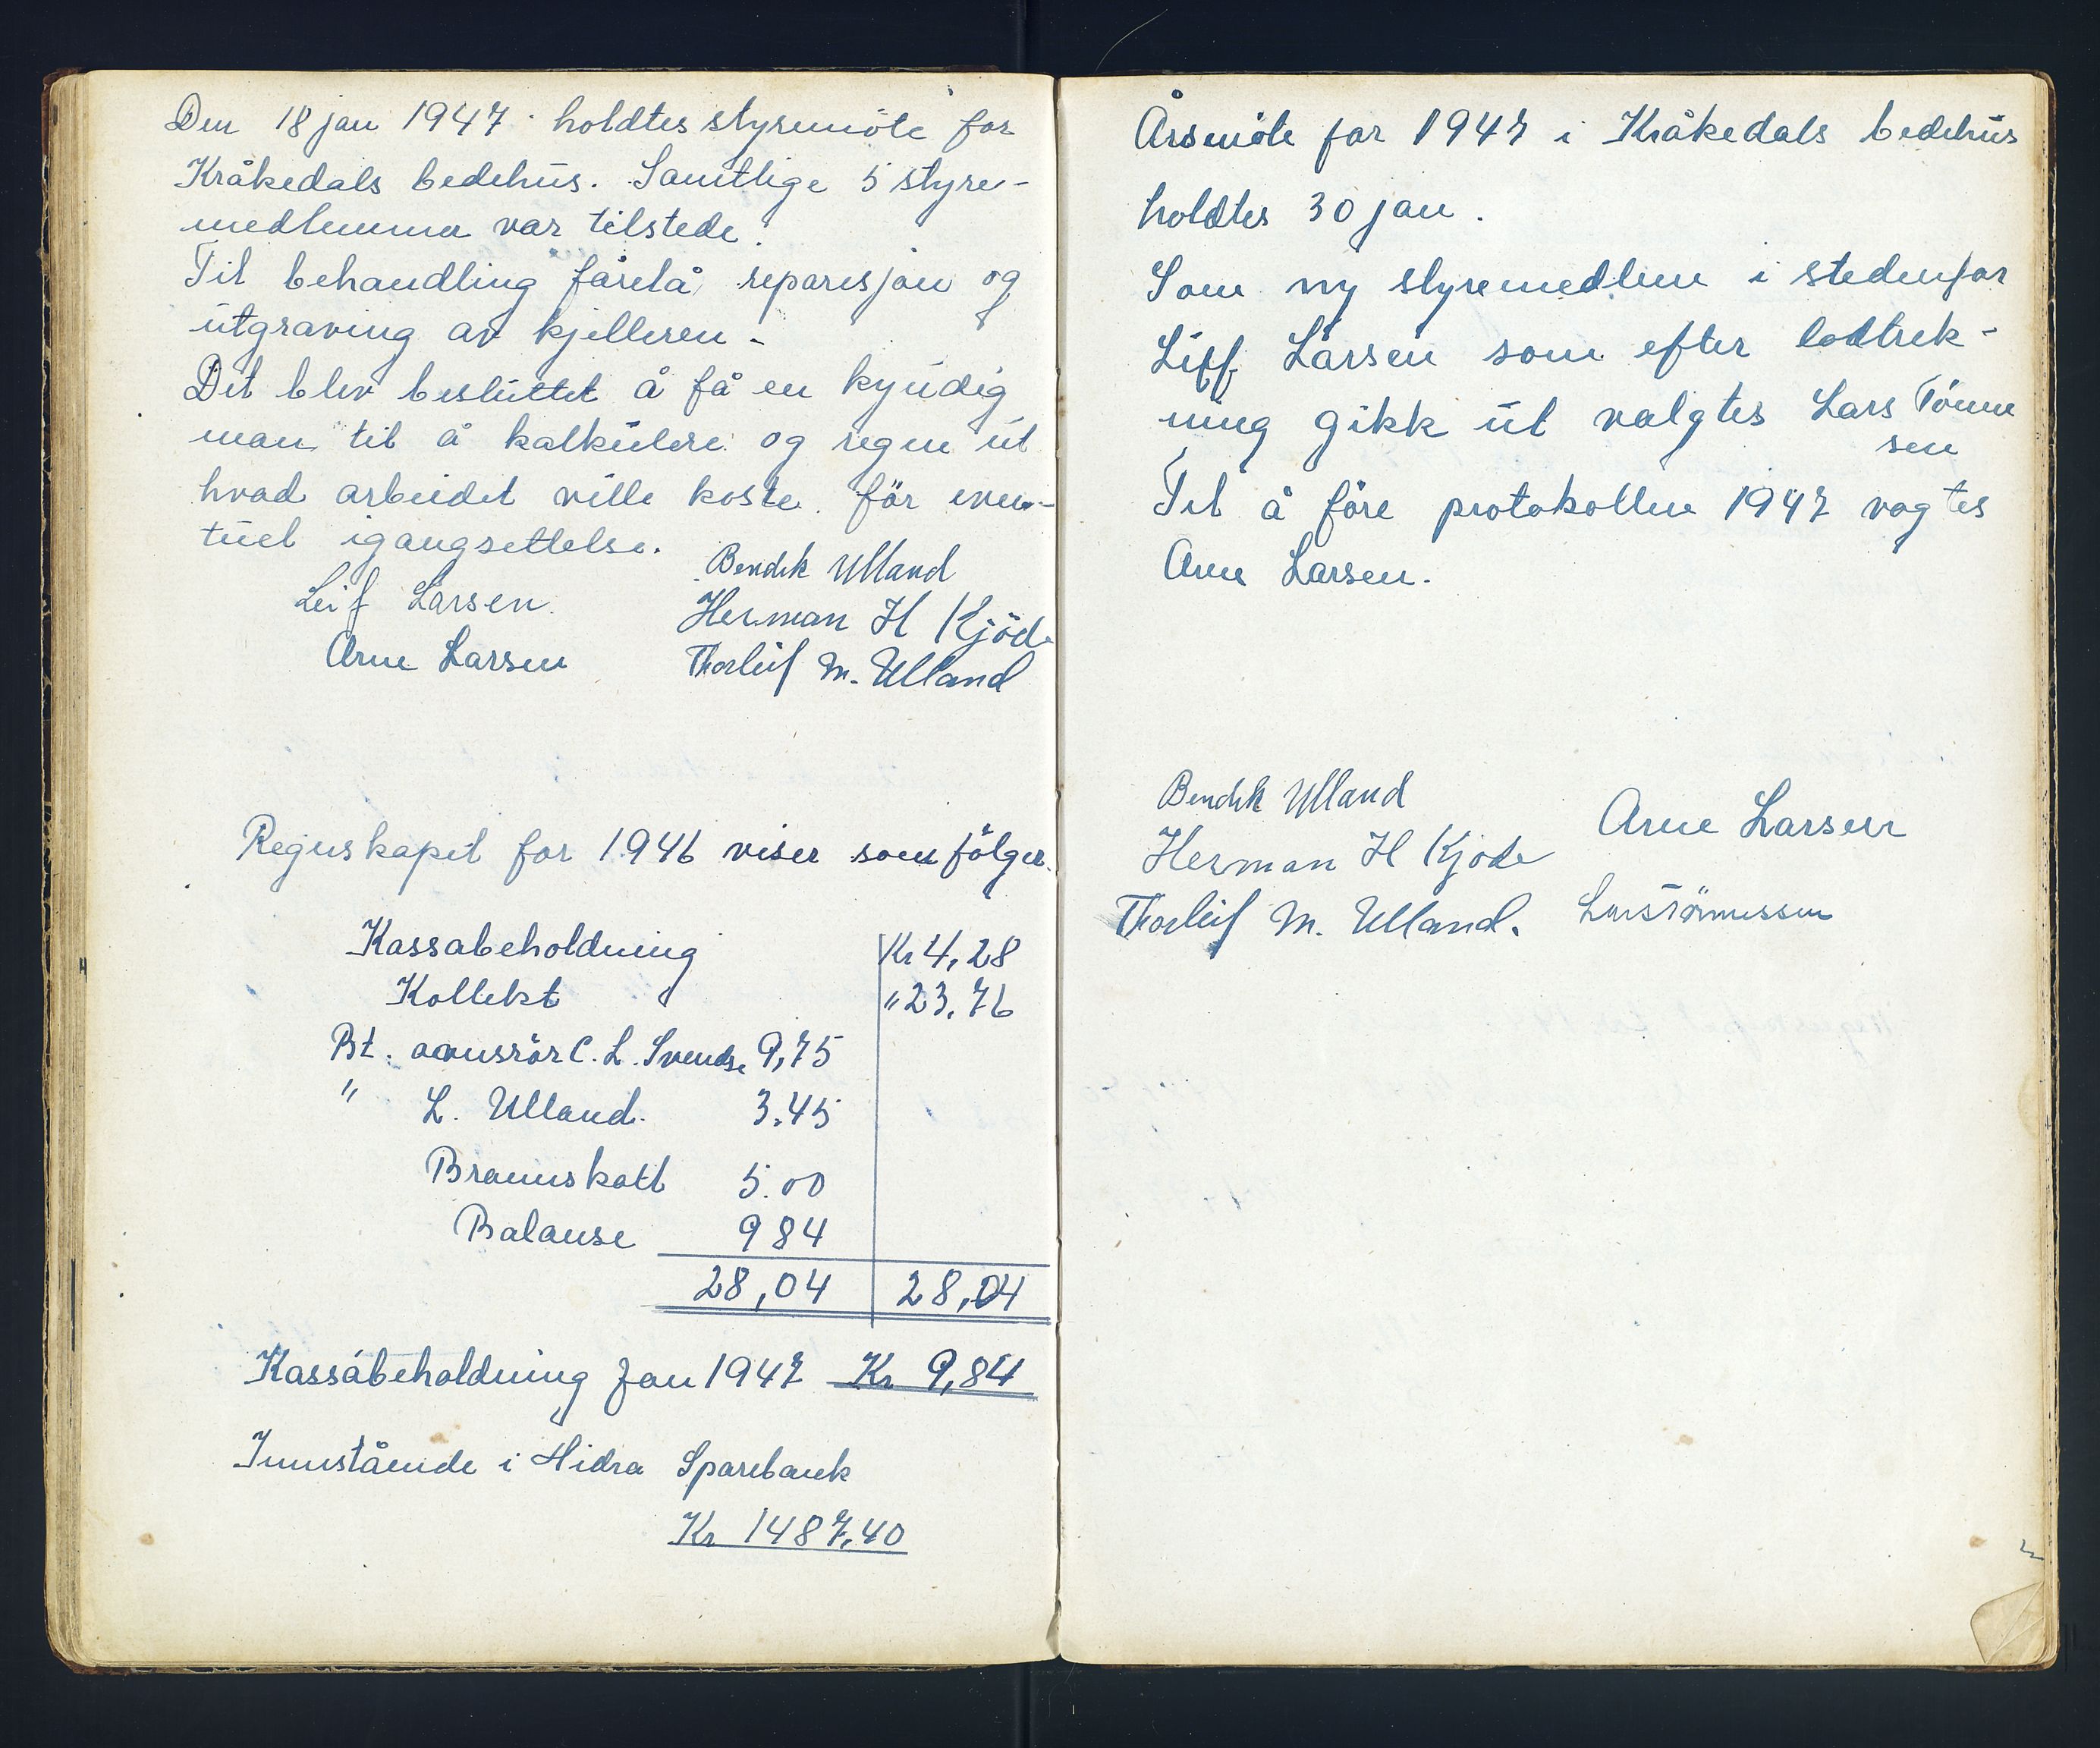 Den 18 jan 1947 holdtes styremöte for
Kråkedals bedehus. Samtlige 5 styre-
medlemmer var tilstede.
Til behandling forelå reparesjon og
utgraving av kjelleren.
Det blev besluttet å få en kyndig
man til å kalkulere og regne ut
hvad arbeidet ville koste för even-
tuel igangsettelse.
Bendik Ulland
Leif Larsen
Herman H Kjöde
Arne Larsen
Thorleif M. Ulland
Regnskapet for 1946 viser som fölger.
Kassabeholdning Kr 4,28
Kollekt " 23,76
Bt. C. L. Svends. 9,75
" L. Ulland. 3.45
Brannskatt 5.00
Balanse 984
28,04 28,04
Kassabeholdning Jan 1947 Kr 9,84
Innstående i Hidra Sparebank
Kr 1487,40
Årsmöte for 1947 i Kråkedals bedehus
holdtes 30 jan.
Som ny styremedlem i stedenfor
Liff Larsen som efter lodtrek-
ning gikk ut valgtes Lars Tönne
sen
Til å före protokollen 1947 vagtes
Arne Larsen.
Bendik Ulland
Arne Larsen
Herman H Kjöde
Thorleif M. Ulland.
Lars Tönnessen